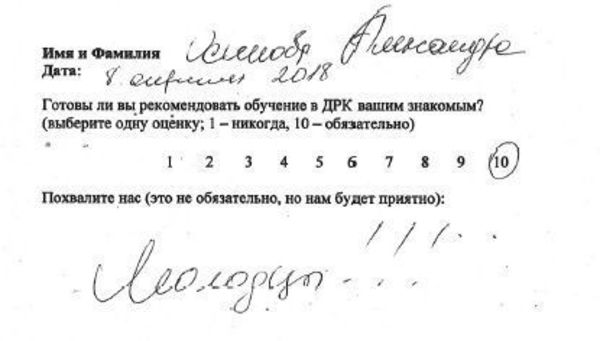 Имя и Фамилия Александра
Дата: 8 апреля 2018
Готовы ли вы рекомендовать обучение в ДРК вашим знакомым?
(выберите одну оценку; 1 – никогда, 10 – обязательно)
1 2 3 4 5 6 7 8 9 10
Похвалите нас (это не обязательно, но нам будет приятно):
Молодцы !!!